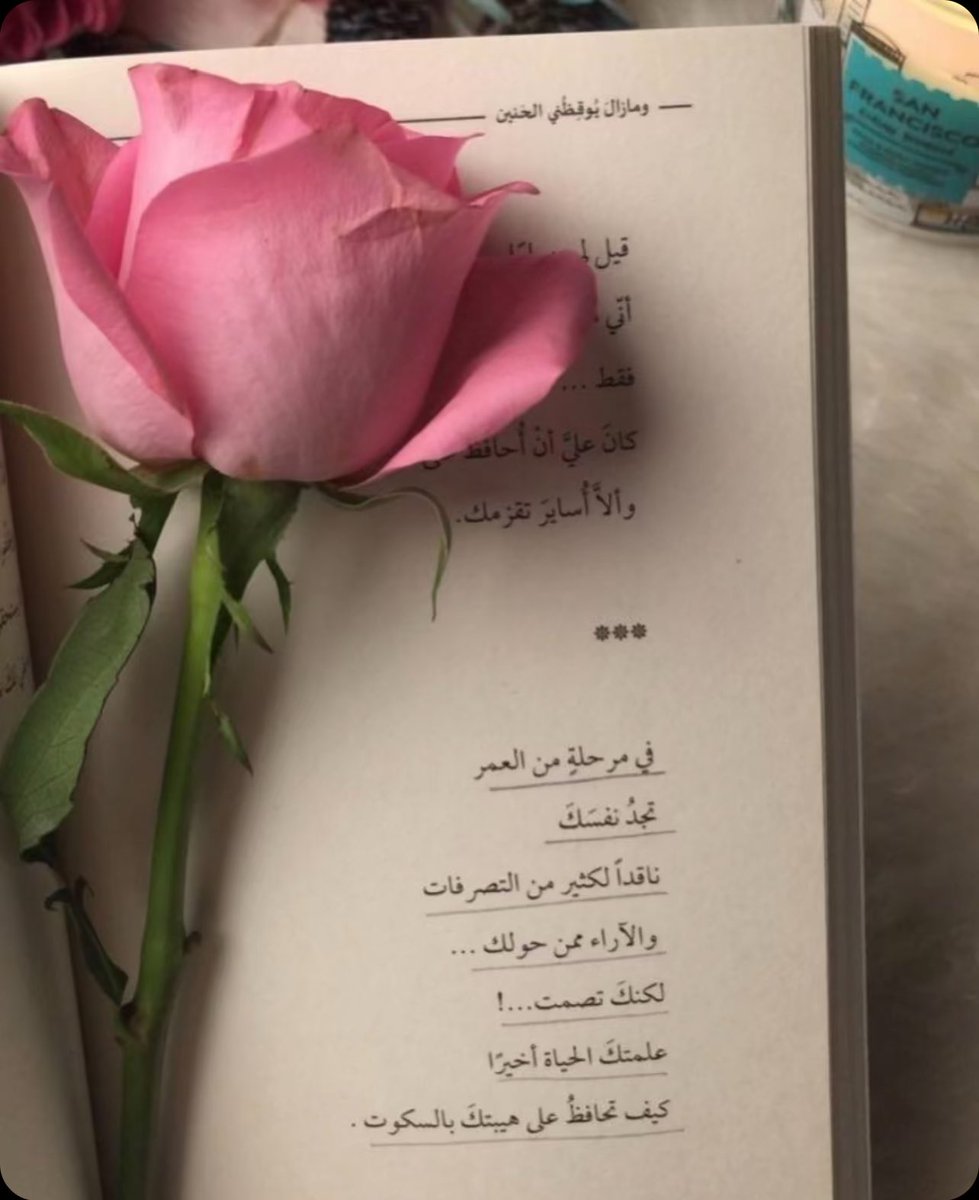 ومازالَ يُوقِظُني الحَنين
قيل لي
أنّي
فقط ...
كانَ عليَّ أنْ أُحافظ
وألاَّ أُسايرَ تقزمك.
***
في مرحلةٍ من العمر
تجدُ نفسَكَ
ناقداً لكثير من التصرفات
والآراء ممن حولك ...
لكنكَ تصمت...!
علمتكَ الحياة أخيرًا
كيف تحافظُ على هيبتكَ بالسكوت .
SAN
FRANCISCO